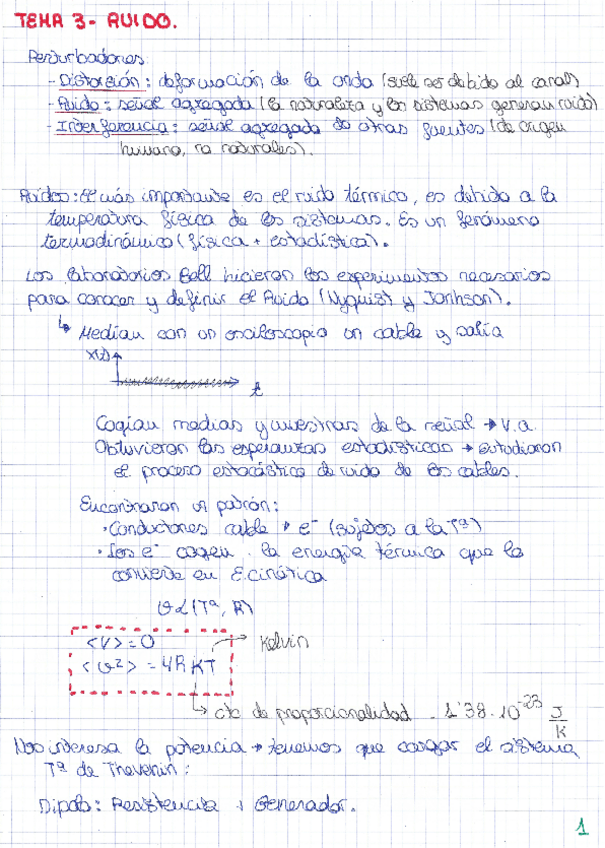 TEMA 3- RUIDO.
Perturbaciones:
- Distorsión: deformación de la onda (suele ser debido al canal)
- Ruido: señal agregada (la naturaleza y los sistemas generan ruido)
- Interferencia: señal agregada de otras fuentes (de origen
humano, no naturales).
Ruidos: El más importante es el ruido térmico, es debido a la
temperatura física de los sistemas. Es un fenómeno
termodinámico (física + estadística).
Los laboratorios Bell hicieron los experimentos necesarios
para conocer y definir el Ruido (Nyquist y Jonhson).
↳ Medían con un osciloscopio un cable y salía
x(t)
t
Cogían medias y muestras de la señal → v.a.
Obtuvieron las esperanzas estadísticas → estudiaron
el proceso estocástico de ruido de los cables.
Encontraron un patrón:
· Conductores cable → e⁻ (sujetos a la Tª)
· Los e⁻ cogen la energía térmica que la
convierte en E.cinética
v α (Tª, R)
<v> = 0
<v²> = 4RKT → Kelvin
↳ cte de proporcionalidad = 1'38·10⁻²³ J/K
Nos interesa la potencia → tenemos que cargar el sistema
Tª de Thevenin:
Dipolo: Resistencia + Generador.
1